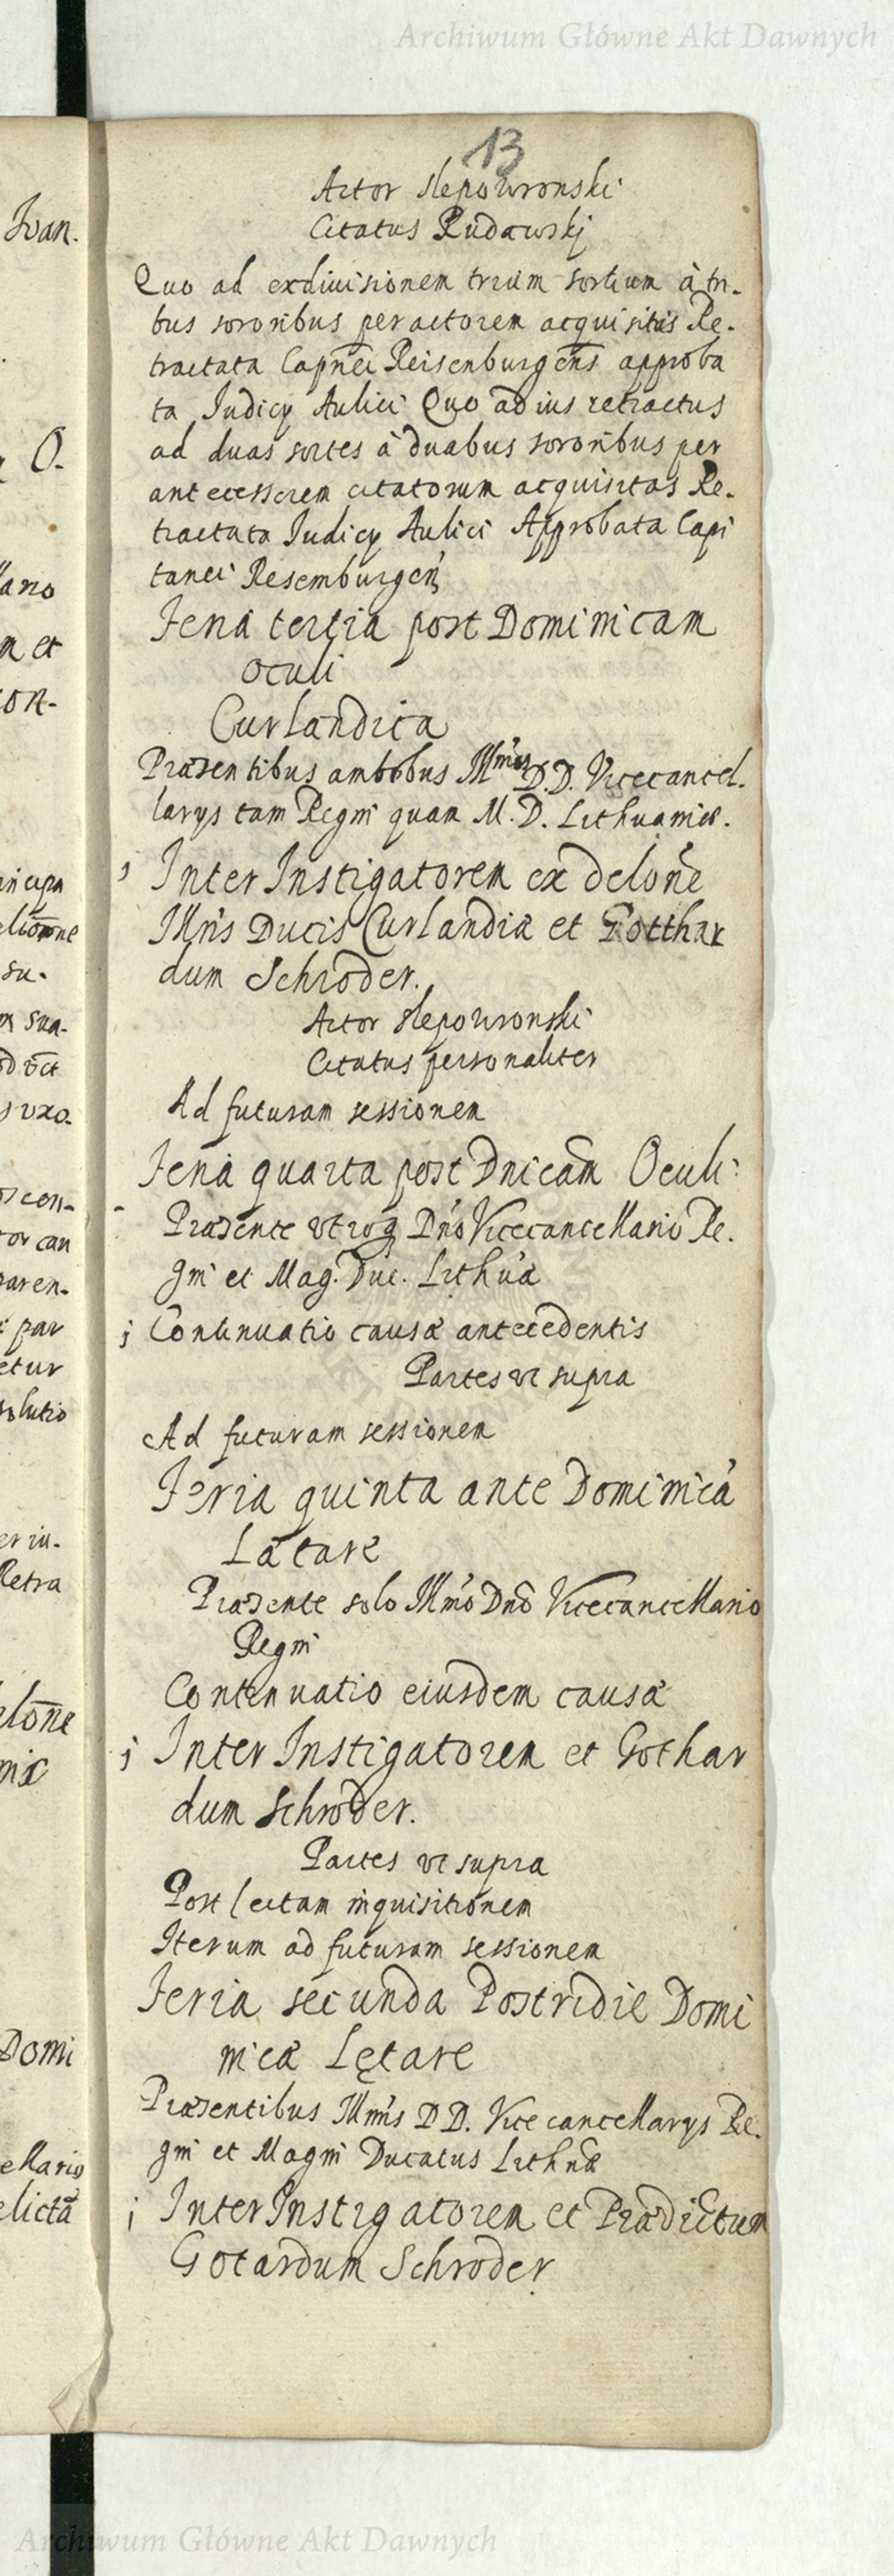 Archiwum Główne Akt Dawnych
13
Actor Slepowronski
Citatus Rudawskj
Quo ad exdiuisionem trium sortium à tri-
bus sororibus per actorem acquisitas Re-
tractata Capnei Reisenburgens approba
ta Iudicy Aulici Quo ad ius retractus
ad duas sortes à duabus sororibus per
antecessorem citatorum acquisitas Re-
tractata Iudicy Aulici Approbata Capi
tanei Resemburgen
Feria tertia post Dominicam
oculi
Curlandica
Præsentibus ambobus Illmis D.D. Vicecancel-
larys tam Regni quam M. D. Lithuaniæ.
Inter Instigatorem ex delone
Illris Ducis Curlandiæ et Gotthar
dum Schroder.
Actor Slepowronski
Citatus personaliter
Ad futuram sessionem
Feria quarta post Dnicam Oculi
Præsente utroq Dno Vicecancellario Re-
gni et Mag. Duc. Lithuæ
j Continuatio causæ antecedentis
Partes vt supra
Ad futuram sessionem
Feria quinta ante Dominicã
Lætare
Præsente solo Illmo Dno Vicecancellario
Regni
Continuatio eiusdem causæ
j Inter Instigatorem et Gothar
dum Schroder.
Partes vt supra
Post lectam inquisitionem
Iterum ad futuram sessionem
Feria secunda Postridie Domi
nicæ Lętare
Præsentibus Illmis D D. Vicecancellarys Re-
gni et Magni Ducatus Lithuæ
j Inter Instigatorem et Prædictum
Gotardum Schroder
Ivan.
O.
m et
con-
su-
vxo-
paren-
par
etur
solutio
Retra
Domi
ellario
Archiwum Główne Akt Dawnych